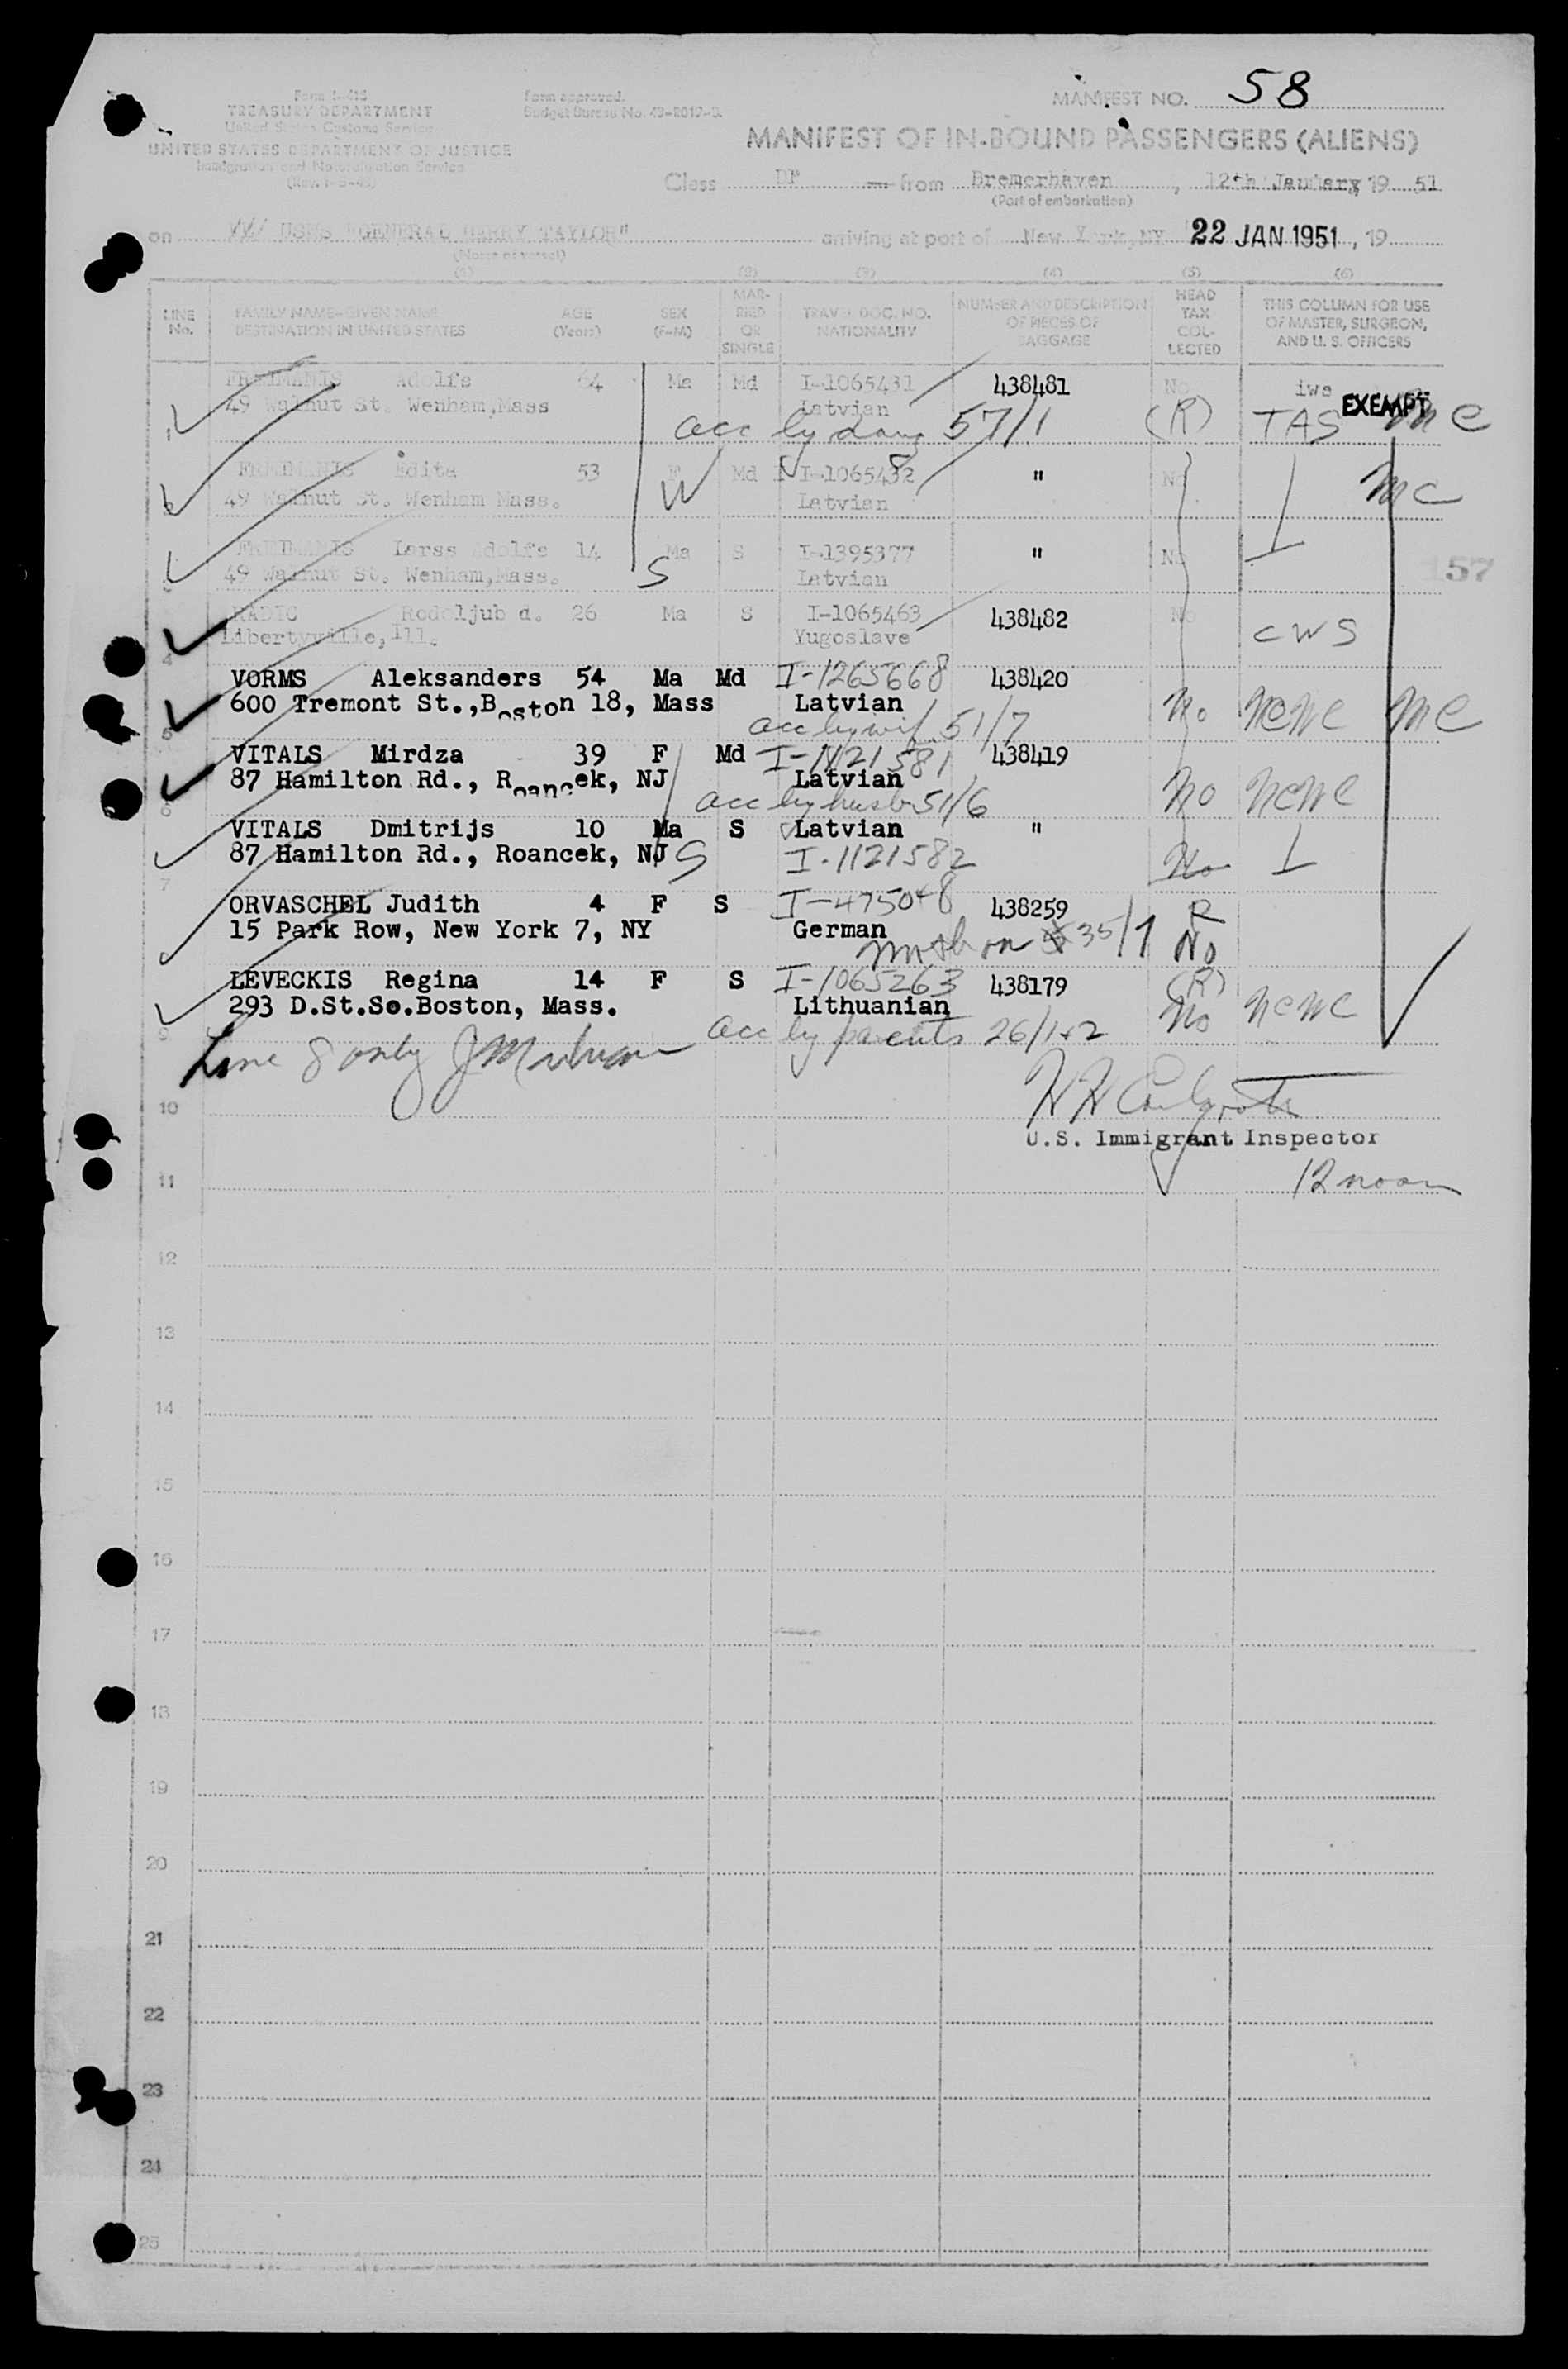 Form I-415
TREASURY DEPARTMENT
United States Customs Service
UNITED STATES DEPARTMENT OF JUSTICE
Immigration and Naturalization Service
Form approved.
Budget Bureau No. 43-R017-3.
MANIFEST NO. 58
MANIFEST OF IN-BOUND PASSENGERS (ALIENS)
Class DP from Bremerhaven, 12th January, 19 51
(Port of embarkation)
on USNS "GENERAL HARRY TAYLOR" arriving at port of New York, NY 22 JAN 1951, 19
(Name of vessel)
(1) (2) (3) (4) (5) (6)
LINE No. FAMILY NAME-GIVEN NAME DESTINATION IN UNITED STATES AGE (Years) SEX (F-M) MARRIED OR SINGLE TRAVEL DOC. NO. NATIONALITY NUMBER AND DESCRIPTION OF PIECES OF BAGGAGE HEAD TAX COLLECTED THIS COLUMN FOR USE OF MASTER, SURGEON, AND U. S. OFFICERS
FREIMANIS Adolfs 64 Ma Md I-1065431 438481 No iws EXEMPT
49 Walnut St. Wenham, Mass Latvian
1 acc by 57/1 (R) TAS MC
FREIMANIS Edite 53 F Md I-1065432 " No MC
49 Walnut St. Wenham Mass. W Latvian
FREIMANIS Larss Adolfs 14 Ma S I-1395377 " No
49 Walnut St. Wenham, Mass. S Latvian 157
RADIC Rodoljub d. 26 Ma S I-1065463 438482 No
Libertyville, Ill. Yugoslave CWS
4
VORMS Aleksanders 54 Ma Md I-1265668 438420
600 Tremont St., Boston 18, Mass Latvian No NCWC MC
5 acc by wife 51/7
VITALS Mirdza 39 F Md I-1121581 438419
87 Hamilton Rd., Roancek, NJ Latvian No NCWC
6 acc by husb 51/6
VITALS Dmitrijs 10 Ma S Latvian "
87 Hamilton Rd., Roancek, NJ S I-1121582 No
7
ORVASCHEL Judith 4 F S I-475048 438259 R
15 Park Row, New York 7, NY German No
moth on 35/1
LEVECKIS Regina 14 F S I-1065263 438179 (R)
293 D.St.So.Boston, Mass. Lithuanian No NCWC
9 acc by parents 26/1+2
Line 8 only
10
U.S. Immigrant Inspector
11 12 noon
12
13
14
15
16
17
18
19
20
21
22
23
24
25